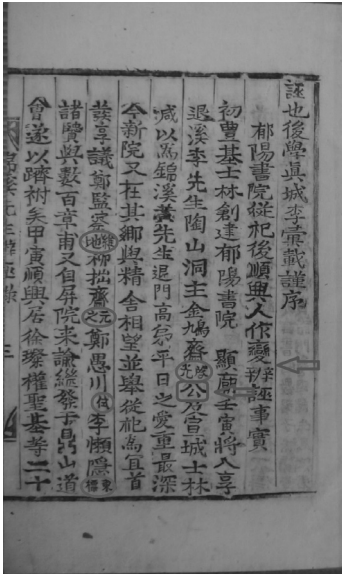 誣也後學眞城李彙載謹序
郁陽書院從祀後順興人作變誣事實
初豊基士林創建郁陽書院 顯廟壬寅將入享
退溪李先生陶山洞主金鳩齋啓光公及宣城士林
咸以爲錦溪黃先生退門高弟平日之愛重最深
今新院又在其鄕與精舍相望並擧從祀爲宜首
發享議鄭監柳拙齋元之鄭愚川侙李懶隱東標
諸賢與數百章甫又自屛院來諭繼發于鼎山道
會遂以躋祔矣甲寅順興居徐璨權聖基等二十
三